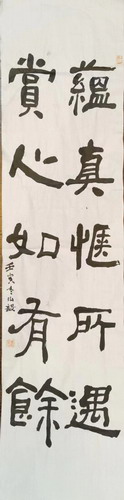 蘊真愜所遇
賞心如有餘
壬寅